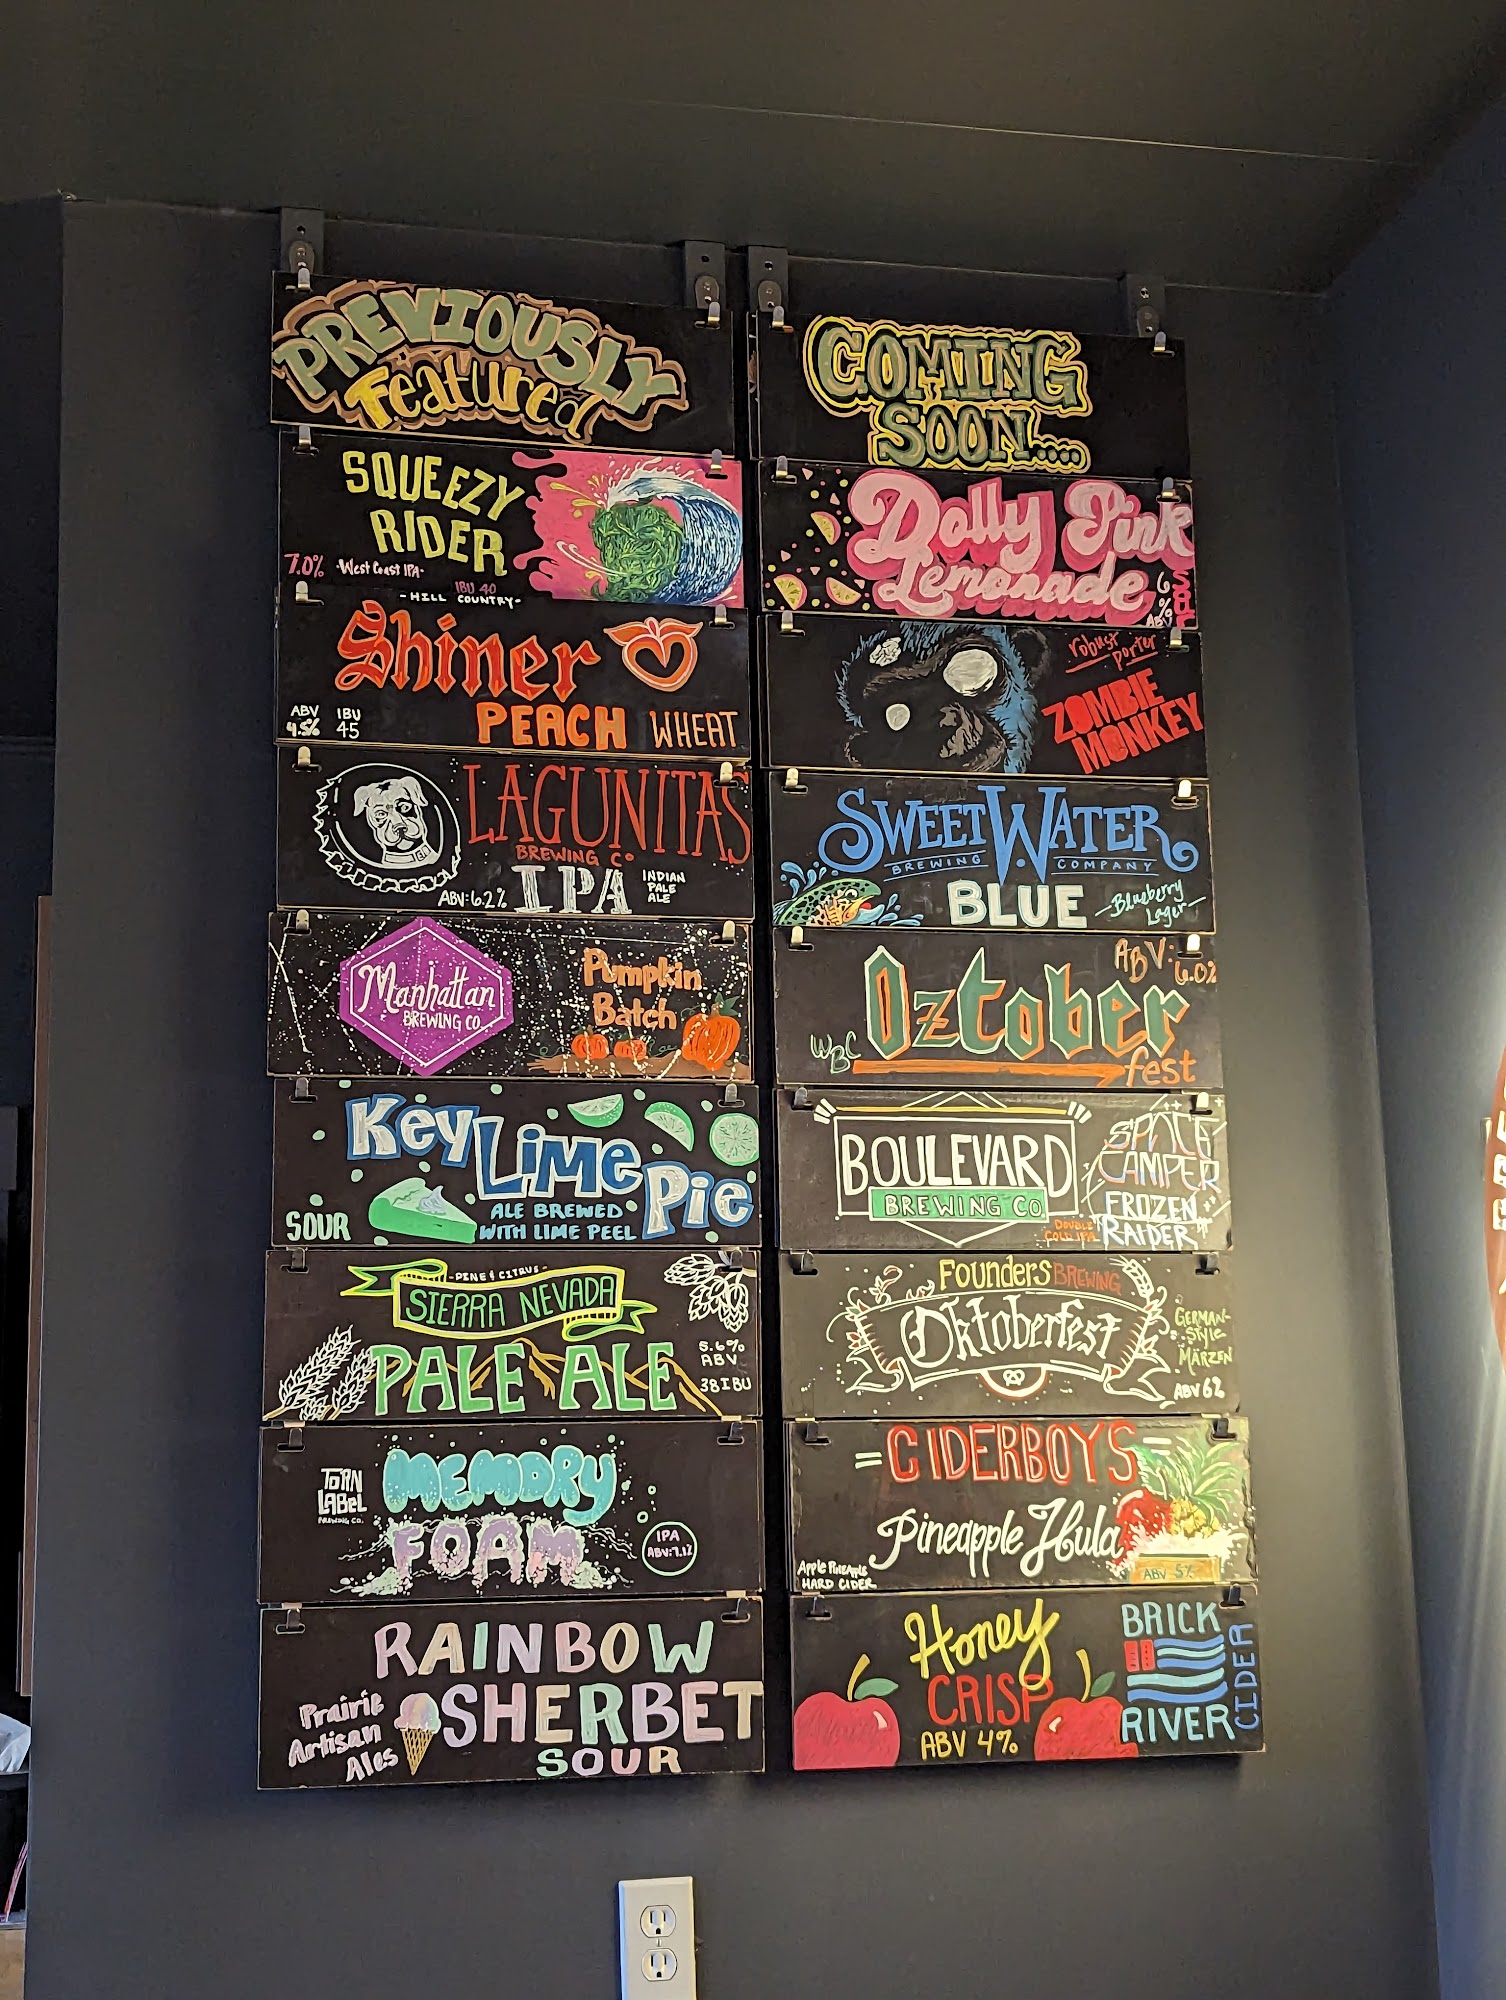 PREVIOUSLY
Featured
SQUEEZY
RIDER
7.0% -West Coast IPA-
IBU 40
-HILL COUNTRY-
Shiner
PEACH WHEAT
ABV IBU
4.5% 45
LAGUNITAS
BREWING Co
ABV:6.2% IPA INDIAN
PALE
ALE
Manhattan
BREWING CO.
Pumpkin
Batch
Key Lime Pie
SOUR
ALE BREWED
WITH LIME PEEL
-PINE & CITRUS-
SIERRA NEVADA
PALE ALE
5.6%
ABV
38 IBU
TORN
LABEL
BREWING CO.
MEMORY
FOAM
IPA
ABV:7.1%
RAINBOW
SHERBET
SOUR
Prairie
Artisan
Ales
COMING
SOON....
Dolly Pink
Lemonade
6
%
ABV
SOUR
robust
porter
ZOMBIE
MONKEY
SWEETWATER
BREWING COMPANY
BLUE
-Blueberry
Lager-
ABV:
6.0%
Oztober
fest
WBC
BOULEVARD
BREWING CO.
SPACE
CAMPER
FROZEN
RAIDER
DOUBLE
COLD IPA
FOUNDERS BREWING
Oktoberfest
GERMAN-
STYLE
MÄRZEN
ABV 6%
=CIDERBOYS=
Pineapple Hula
Apple Pineapple
HARD CIDER
ABV 5%
Honey
CRISP
ABV 4%
BRICK
RIVER
CIDER